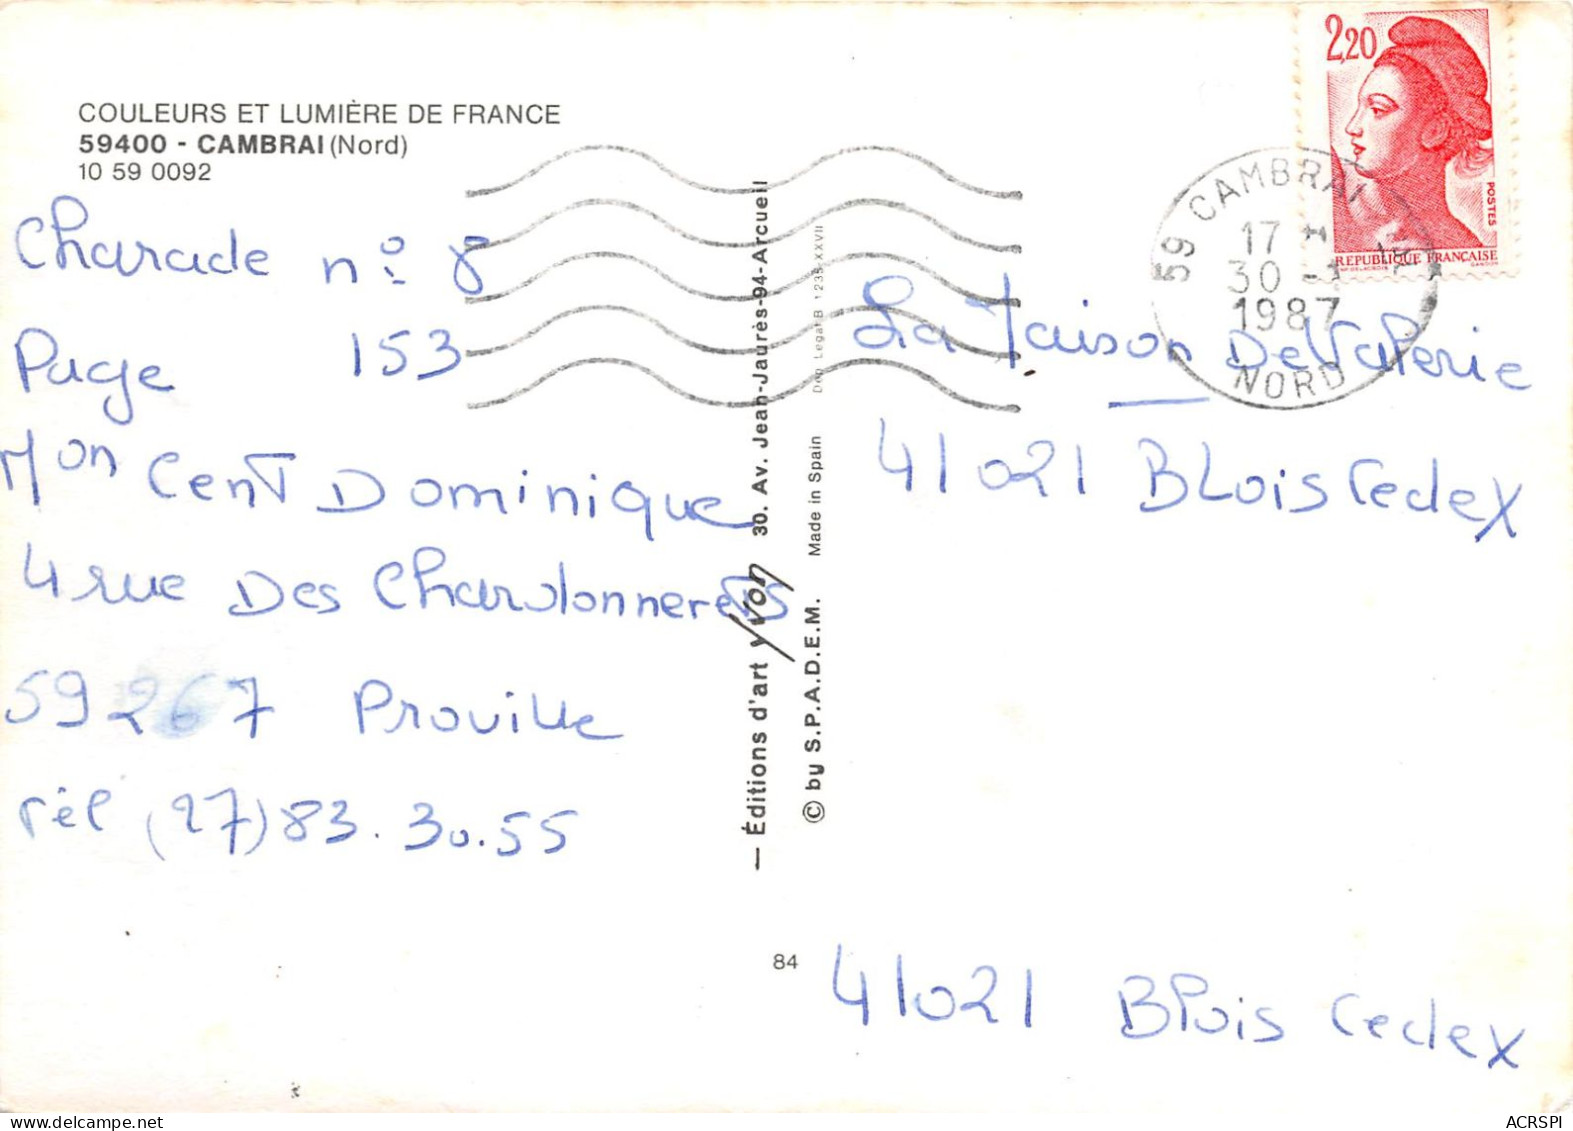 COULEURS ET LUMIÈRE DE FRANCE
59400 - CAMBRAI (Nord)
10 59 0092
Charade n° 8
Page 153
Mon Cent Dominique
4 rue Des Chardonnerets
59267 Proville
Tél (27) 83.30.55
— Éditions d'art Yvon 30. Av. Jean-Jaurès-94-Arcueil
© by S.P.A.D.E.M. Made in Spain Dep Legal B 1235-XXVII
84
2,20
POSTES
REPUBLIQUE FRANÇAISE
59 CAMBRAI
17
30
1987
NORD
La Maison De Valerie
41021 BLois Cedex
41021 Blois Cedex
ACRSPI